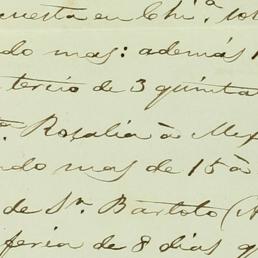 cuesta en Chi.ª
do mas: además
tercio de 3 quinta
ta. Rosalia à Mex
ndo mas de 15 à
de Sn. Bartolo (
feria de 8 dias q